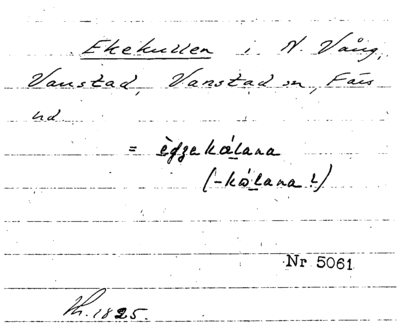 Ekekullen i N. Vång,
Vanstad, Vanstad sn, Färs
hd
= ègzekálana
(-kálana?)
Nr 5061
Vh. 1825.